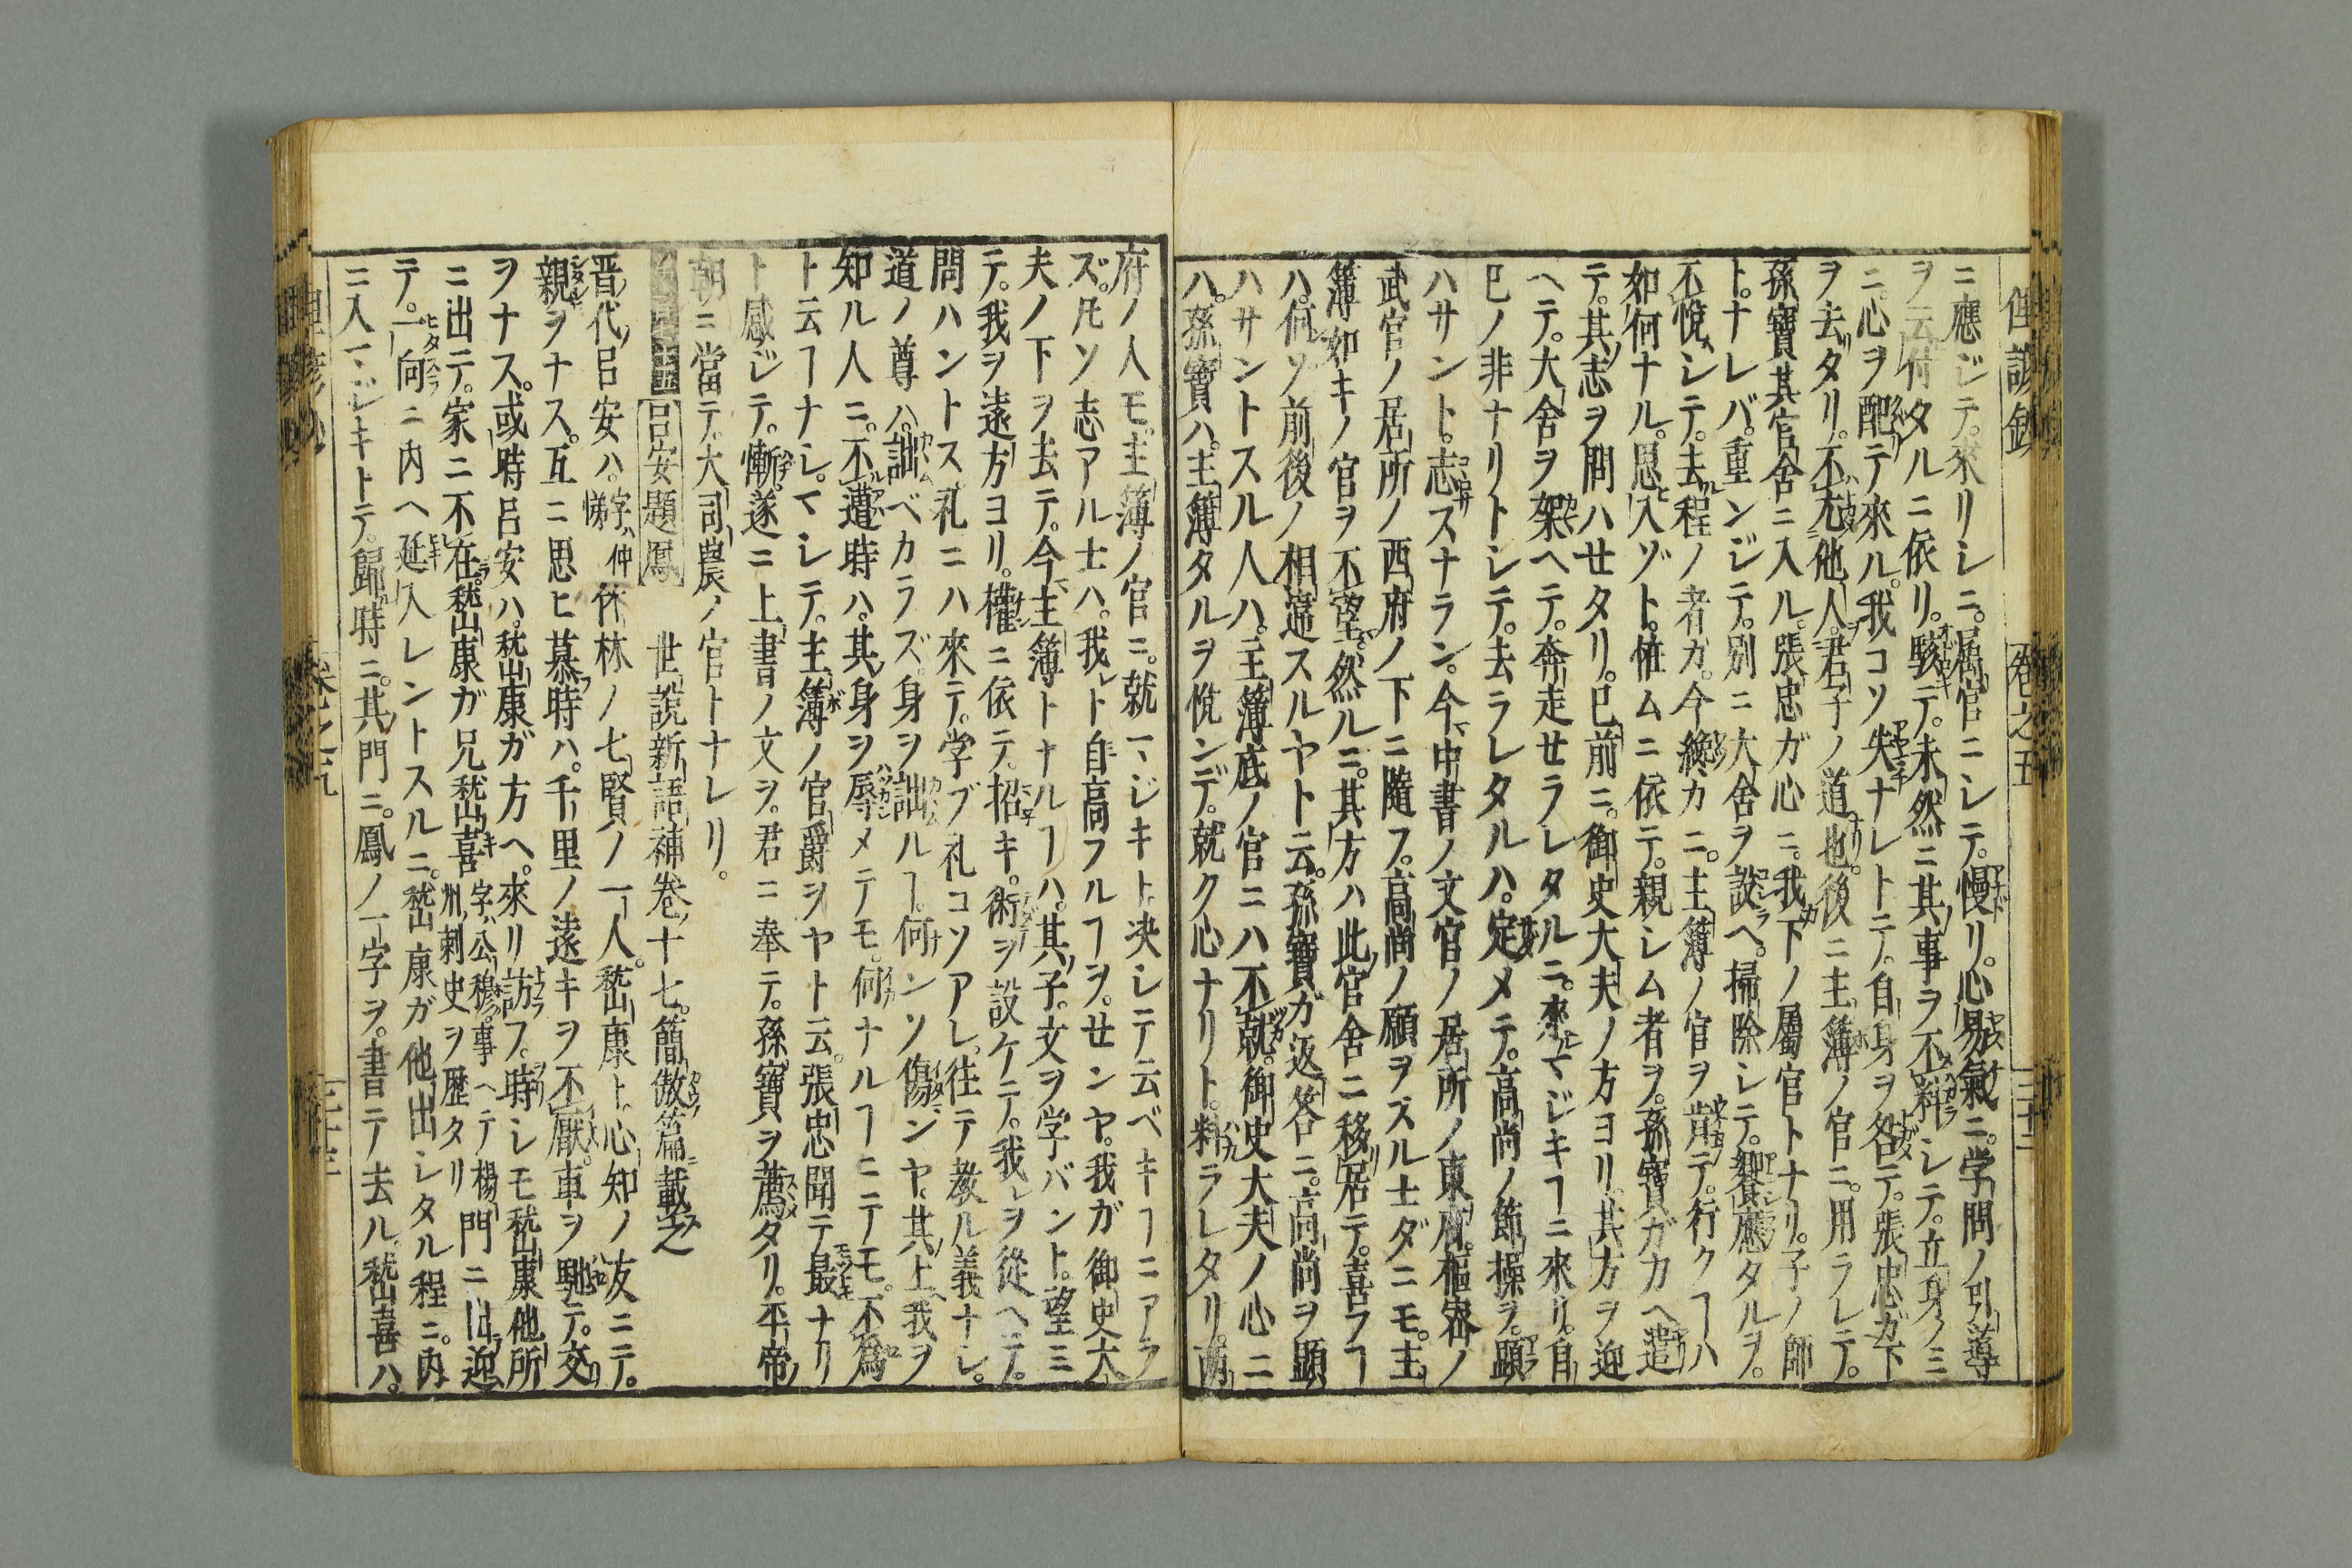 俚諺鈔 巻之五 三十二
ニ應ジテ。來リシニ。属官ニシテ。慢リ。心易氣ニ。学問ノ引導
ヲ云付タルニ依リ。駭テ。未然ニ其事ヲ不料シテ。立身ノミ
ニ。心ヲ配テ來ル。我コソ失ナレトニテ。自身ヲ咎テ。張忠ガ下
ヲ去タリ。不尤他人。君子ノ道也。後ニ主簿ノ官ニ。用ラレテ。
孫寶其官舍ニ入ル。張忠ガ心ニ。我下ノ屬官トナリ。子ノ師
ト。ナレバ。重ンジテ。別ニ大舍ヲ設ヘ。掃除シテ。饗應タルヲ。
不悅シテ。去程ノ者ガ。今纔カニ。主簿ノ官ヲ肯テ。行クヿハ
如何ナル。思入ゾト。恠ムニ依テ。親シム者ヲ。孫寶ガカヘ遣
テ。其志ヲ問ハセタリ。已前ニ。御史大夫ノ方ヨリ。其方ヲ迎
ヘテ。大舍ヲ架ヘテ。奔走せラレタルニ。來マジキヿニ來リ。自
巳ノ非ナリトシテ。去ラレタルハ。定メテ。高尚ノ節操ヲ。顕
ハサント。志スナラン。今中書ノ文官ノ居所ノ東府。樞密ノ
武官ノ居所ノ西府ノ下ニ隨フ。高尚ノ願ヲスル士ダニモ。主
簿如キノ官ヲ不望。然ルニ。其方ハ此官舍ニ移居テ。喜フヿ
ハ。何ソ前後ノ相違スルヤト云。孫寶ガ返答ニ。高尚ヲ顕
ハサントスル人ハ。主簿底ノ官ニハ不就。御史大夫ノ心ニ
ハ。孫寶ハ。主簿タルヲ悅ンデ。就ク心ナリト。料ラレタリ。両
府ノ人モ。主簿ノ官ニ。就マジキト。决シテ云ベキヿニアラ
ズ。凡ソ志アル士ハ。我ト自高フルヿヲ。せンヤ。我ガ御史大
夫ノ下ヲ去テ。今主簿トナルヿハ。其子。文ヲ学バント。望ミ
テ。我ヲ遠方ヨリ。權ニ依テ。招キ。術ヲ設ケテ。我ヲ從ヘテ。
問ハントス。礼ニハ來テ。学ブ礼コソアレ。往テ教ル義ナシ。
道ノ尊ハ。詘ベカラズ。身ヲ詘ルヿ。何ンソ傷ンヤ。其上我ヲ
知ル人ニ。不遭時ハ。其身ヲ辱メテモ。何ナルヿニテモ。不為
ト云ヿナシ。マシテ。主簿ノ官爵ヲヤト云。張忠聞テ最ナリ
ト感ジテ。慚。遂ニ上書ノ文ヲ。君ニ奉テ。孫寶ヲ薦タリ。平帝
朝ニ當テ。大司農ノ官トナレリ。
呂安題鳳 世説新語補巻十七。簡傲篇載之
晋代呂安ハ。字ハ仲悌 竹林ノ七賢ノ一人。嵆康ト。心知ノ友ニテ。
親ヲナス。互ニ思ヒ慕時ハ。千里ノ遠キヲ不厭。車ヲ馳テ。交
ヲナス。或時呂安ハ。嵆康ガ方ヘ。來リ訪フ。時シモ嵆康他所
ニ出テ。家ニ不在。嵆康ガ兄嵆喜 字ハ公穆。事ヘテ楊州刺史ヲ歴タリ 門ニ出迎
テ。一向ニ内ヘ延入レントスルニ。嵆康ガ他出シタル程ニ。内
ニ入マジキトテ。歸時ニ。其門ニ。鳳ノ一字ヲ。書テ去ル。嵆喜ハ。